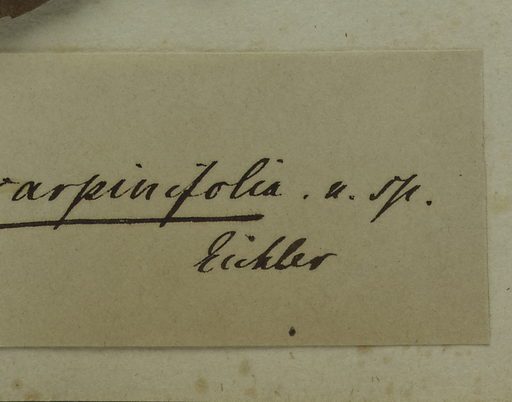 carpinifolia. n. sp.
Eichler